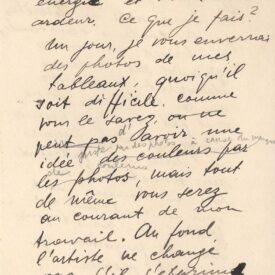 énergie et
ardeur. Ce que je fais?
Un jour, je vous enverrai
des photos de mes
tableaux, quoiqu'il
soit difficile, comme
vous le savez, ou ne
peut pas d'avoir une
idée des couleurs par
les photos, mais tout
de même vous serez
au courant de mon
travail. Au fond
l'artiste ne change
pas s'il s'exprime